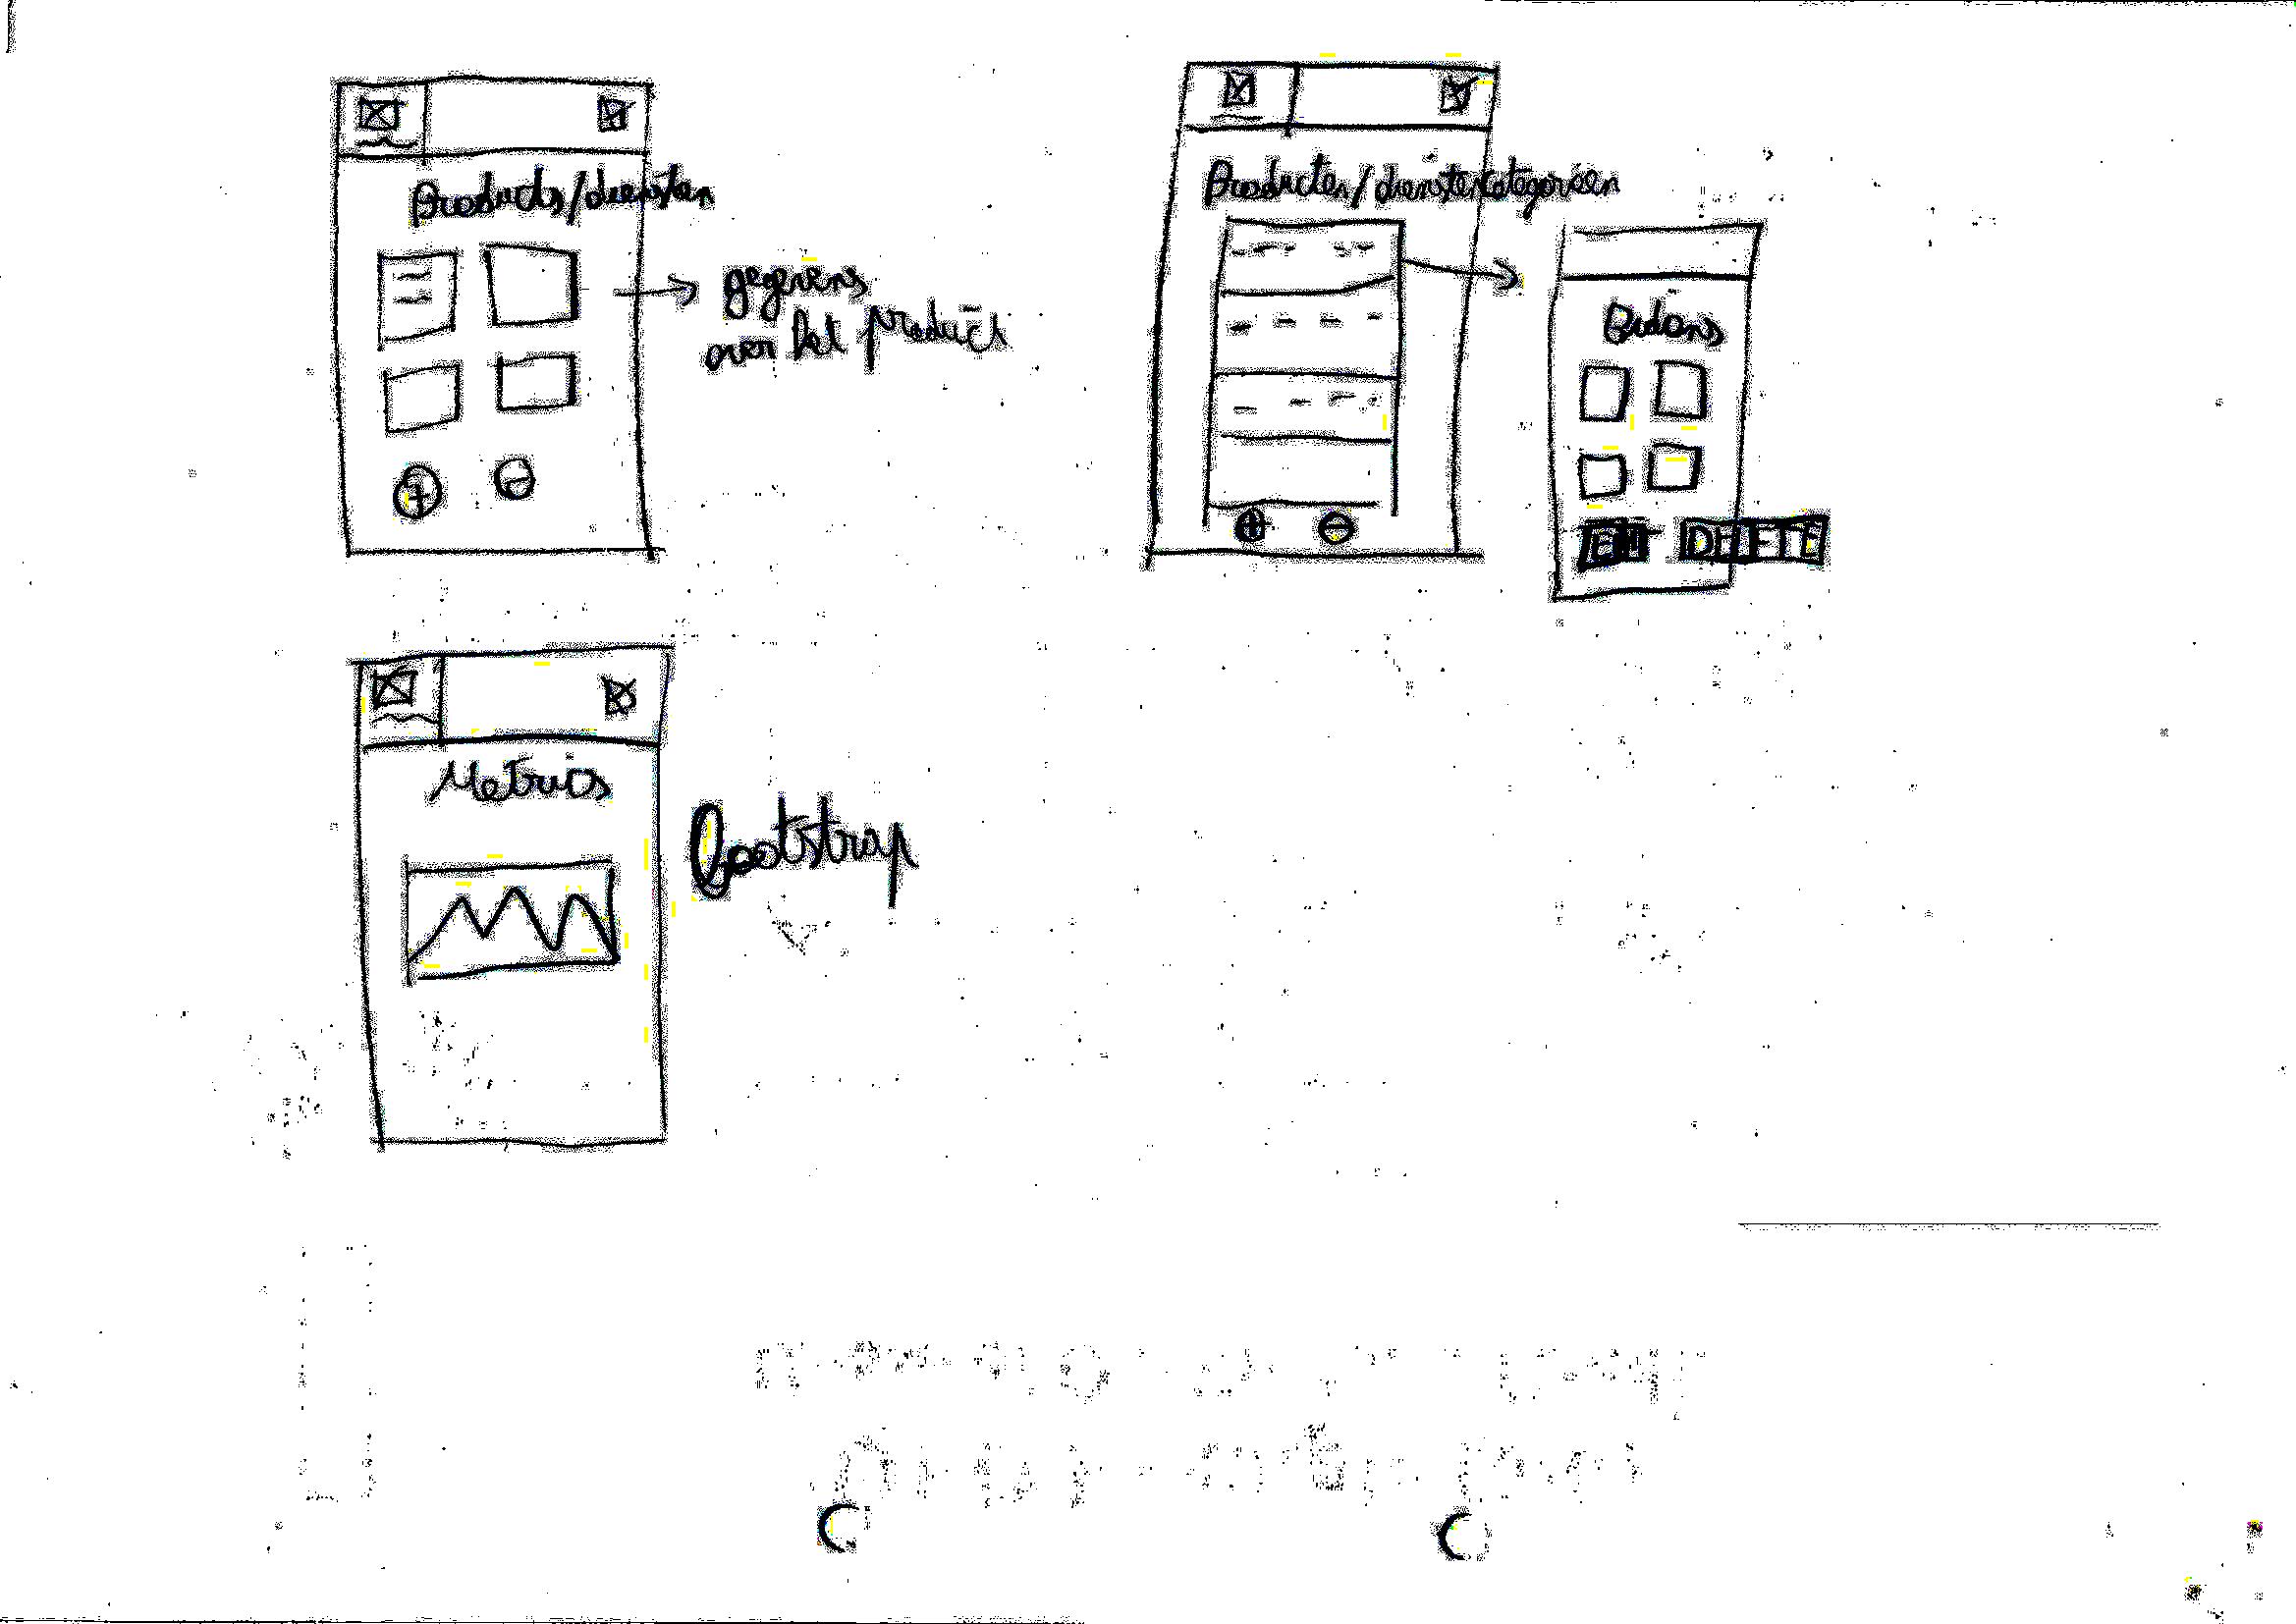 Products/diensten
gegevens
over het product
Producten/dienstencategorieën
Bidons
EDIT DELETE
Metrics
bootstrap